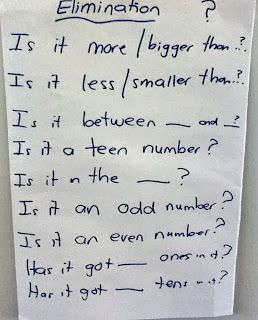 Elimination ?
Is it more/bigger than..?
Is it less/smaller than..?
Is it between __ and _?
Is it a teen number?
Is it n the __ ?
Is it an odd number?
Is it an even number?
Has it got __ ones in it?
Has it got __ tens in it?